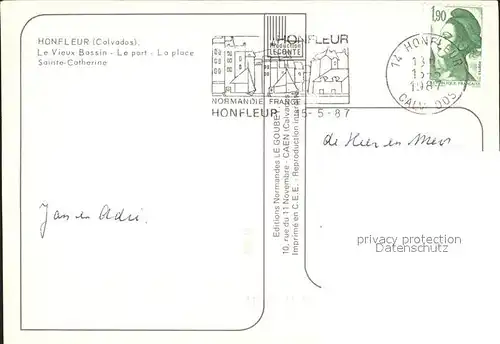 HONFLEUR (Calvados).
Le Vieux Bassin - Le port - La place
Sainte-Catherine
Production
LECONTE
HONFLEUR
NORMANDIE FRANCE
HONFLEUR 15-5-87
1,90
14 HONFLEUR
15-5
1987
CALVADOS
Editions Normandes LE GOUBEY
10, rue du 11 Novembre - CAEN (Calvados)
Imprimé en C.E.E. - Reproduction interdite
Jan en Adri.
de Hier en Meer
privacy protection
Datenschutz